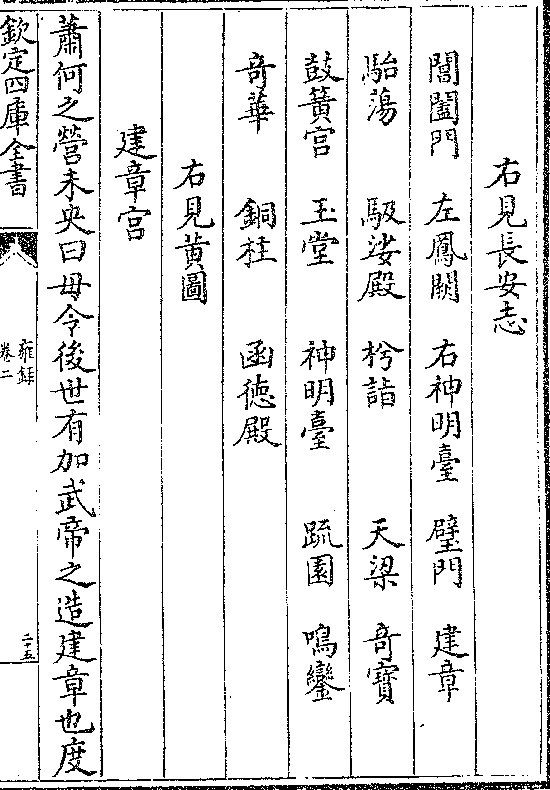 右見長安志
閶闔門 左鳳闕 右神明臺 璧門 建章
駘蕩 馺娑殿 枍詣 天梁 奇寶
鼓簧宫 玉堂 神明臺 䟽圃 鳴鑾
奇華 銅柱 函徳殿
右見黄圖
建章宫
蕭何之營未央曰毋令後世有加武帝之造建章也度
欽定四庫全書
雍録
卷二
二十五